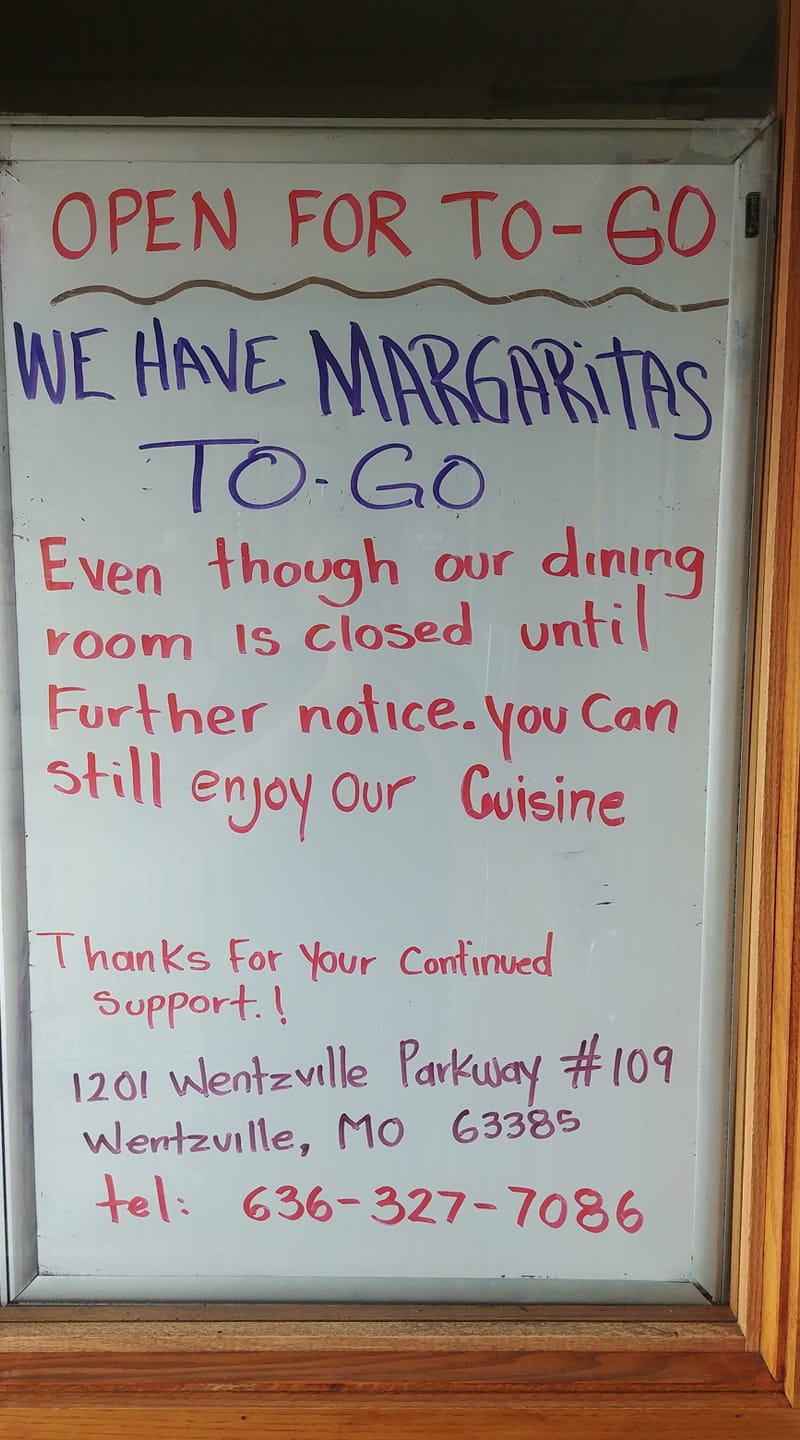 OPEN FOR TO-GO
WE HAVE MARGARiTAS
TO-GO
Even though our dining
room is closed until
Further notice. you Can
still enjoy our Cuisine
Thanks For Your Continued
support.!
1201 Wentzville Parkway #109
Wentzville, MO 63385
tel: 636-327-7086